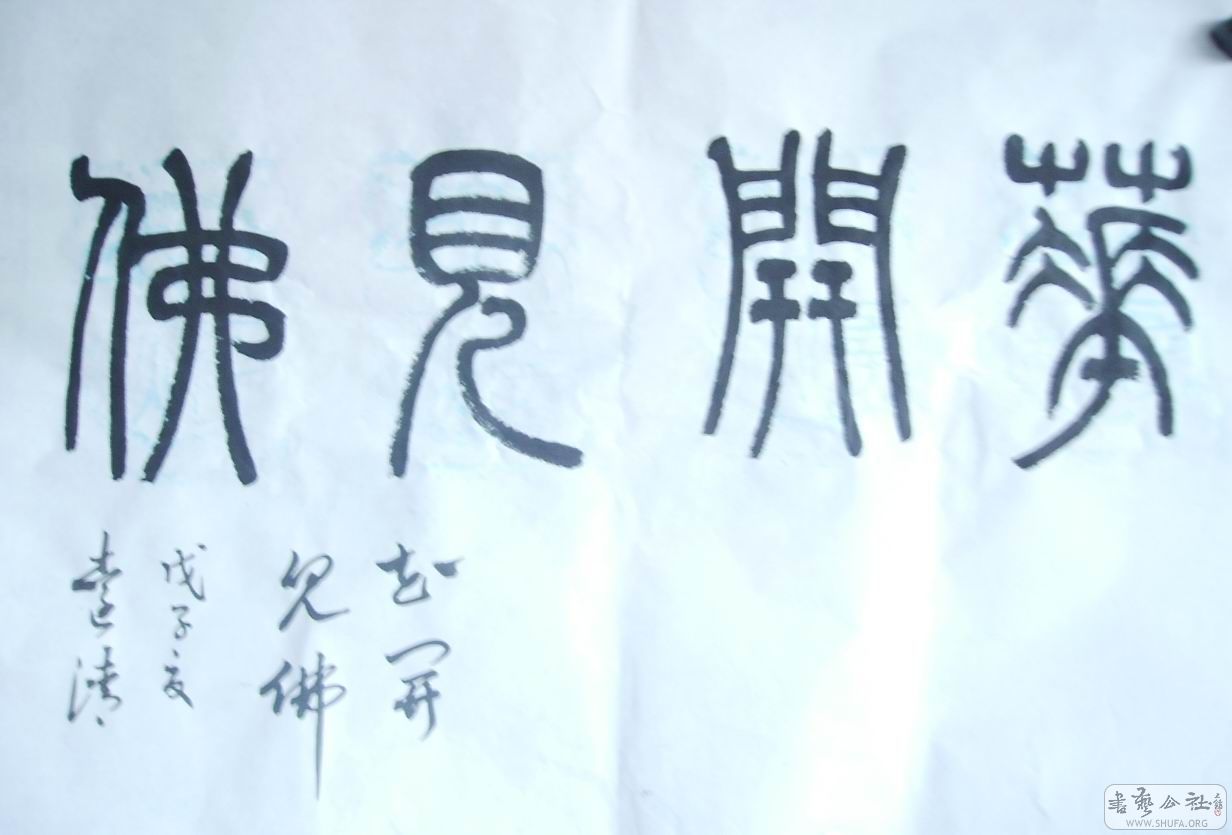 華開見佛
花開
見佛
戊子夏
遠清
書藝公社
WWW.SHUFA.ORG